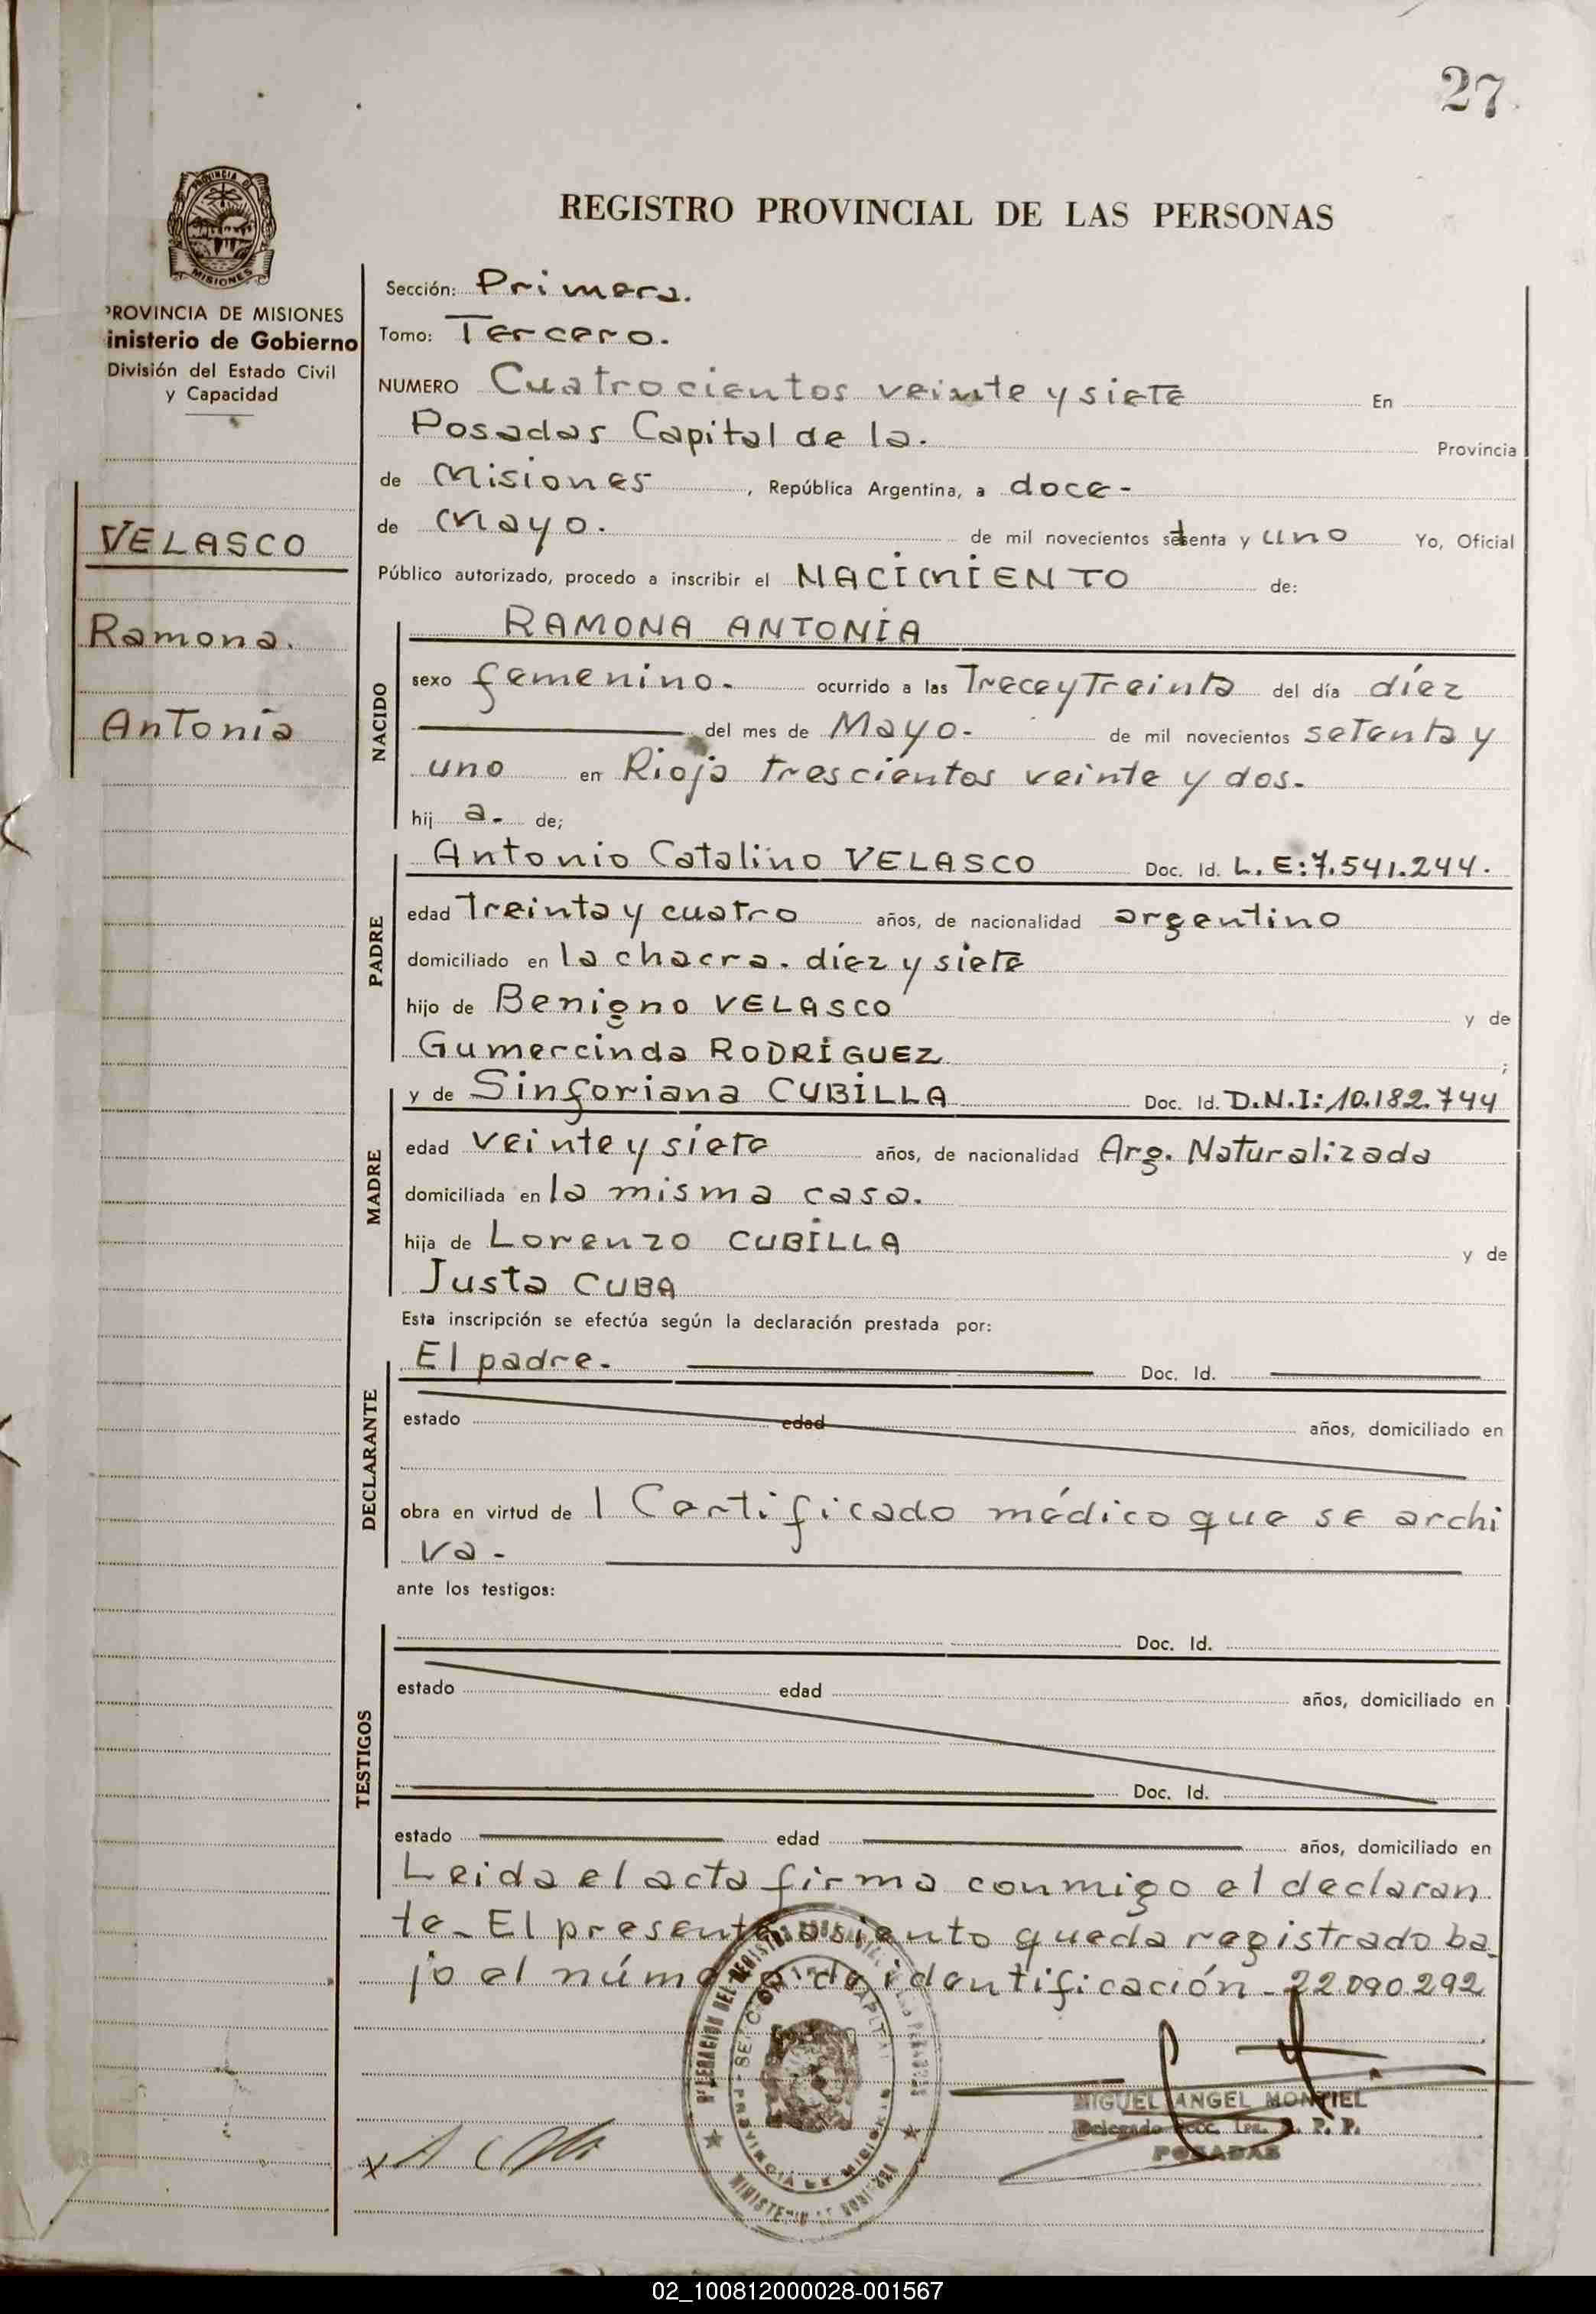 27
REGISTRO PROVINCIAL DE LAS PERSONAS
PROVINCIA DE MISIONES
MISIONES
PROVINCIA DE MISIONES
inisterio de Gobierno
División del Estado Civil
y Capacidad
VELASCO
Ramona.
Antonia
Sección: Primera.
Tomo: Tercero.
NUMERO Cuatrocientos veinte y siete En
Posadas Capital de la. Provincia
de Misiones, República Argentina, a doce-
de Mayo. de mil novecientos setenta y uno Yo, Oficial
Público autorizado, procedo a inscribir el NACIMIENTO de:
NACIDO
RAMONA ANTONIA
sexo femenino. ocurrido a las Trece y Treinta del día díez
del mes de Mayo- de mil novecientos setenta y
uno en Rioja trescientos veinte y dos-
hij a- de;
PADRE
Antonio Catalino VELASCO Doc. Id. L.E:7.541.244.
edad Treinta y cuatro años, de nacionalidad argentino
domiciliado en la chacra. díez y siete
hijo de Benigno VELASCO y de
Gumercinda RODRIGUEZ ;
MADRE
y de Sinforiana CUBILLA Doc. Id. D.N.I:10.182.744
edad veinte y siete años, de nacionalidad Arg. Naturalizada
domiciliada en la misma casa.
hija de Lorenzo CUBILLA y de
Justa CUBA
Esta inscripción se efectúa según la declaración prestada por:
DECLARANTE
El padre- Doc. Id.
estado edad años, domiciliado en
obra en virtud de 1 Certificado médico que se archi
va-
ante los testigos:
TESTIGOS
Doc. Id.
estado edad años, domiciliado en
Doc. Id.
estado edad años, domiciliado en
Leida el acta firma conmigo el declaran
te- El presente asiento queda registrado ba-
jo el número de identificación-22.090.292
MIGUEL ANGEL MONTIEL
Delegado Secc. 1ra. R. P. P.
POSADAS
PROVINCIA DE MISIONES
02_100812000028-001567